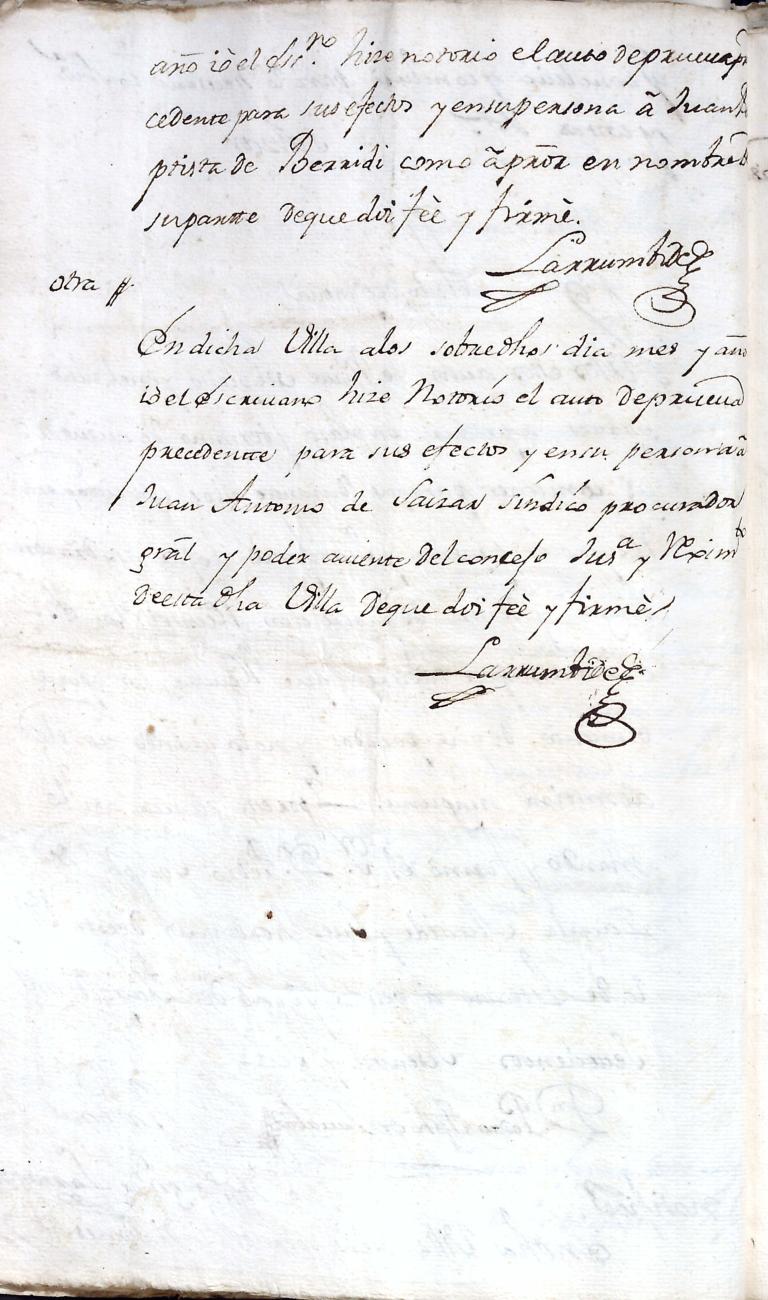 año iò el Scr.no hize notorio el auto de prueua pre
cedente para sus efectos y en su persona â Juan Ba
ptista de Berridi como âpnõr en nombre de
su partte de que doi feè y firmè.
Larrumbide
Otra //.
En dicha Villa a los sobredhos dia mes y año
iò el Escriuano hize Notorio el auto de prueua
precedentte para sus efectos y en su persona â
Juan Antonio de Saizar sindico procurador
grãl y poder auiente del concejo Jusa y Reximto
de esta dha Villa de que doi feè y firmè
Larrumbide